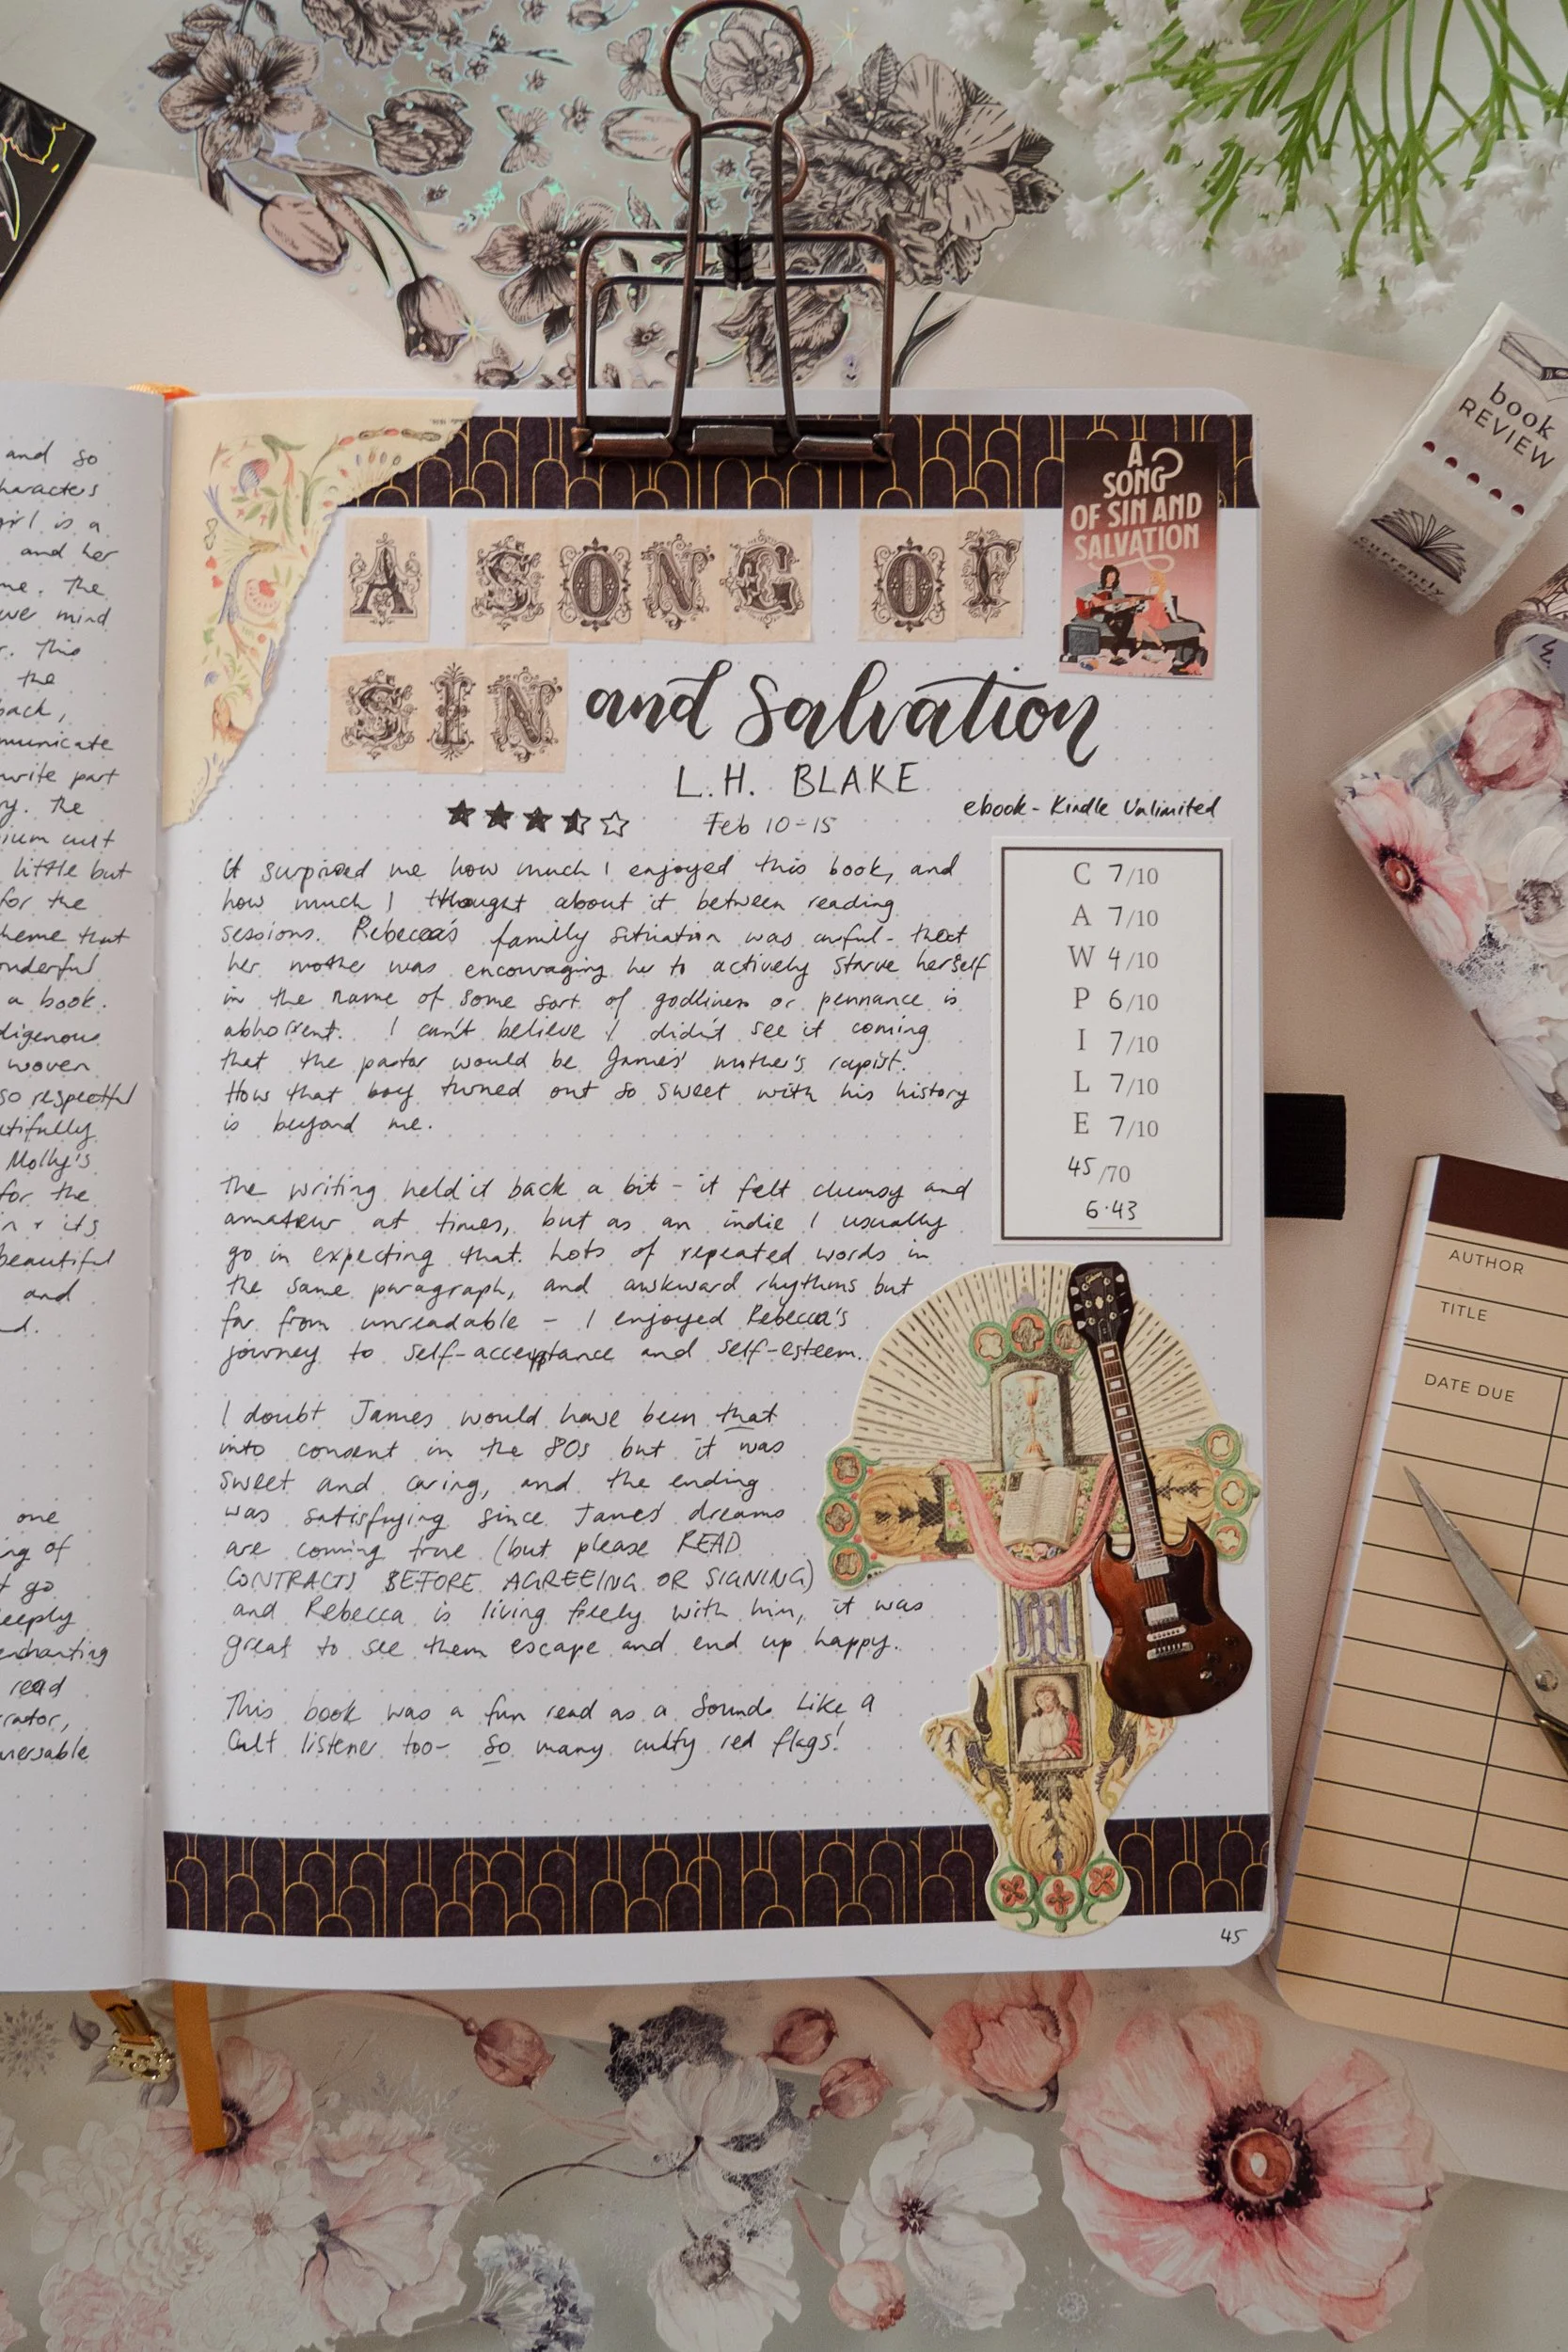 and so
haracters
girl is a
and her
me. The
ver mind
r. This
the
back,
municate
ourite part
ry. The
ium cult
little but
for the
heme that
onderful
a book.
digenous
woven
so respectful
utifully
Molly's
for the
n + its
beautiful
and
d.
one
ng of
t go
deeply
enchanting
read
rator,
versable
A SONG OF
SIN and Salvation
L.H. BLAKE
Feb 10-15
ebook - Kindle Unlimited
A
SONG
OF SIN AND
SALVATION
It surprised me how much I enjoyed this book, and
how much I thought about it between reading
sessions. Rebecca's family situation was awful - that
her mother was encouraging her to actively starve herself
in the name of some sort of godliness or pennance is
abhorrent. I can't believe I didn't see it coming
that the pastor would be James' mother's rapist.
How that boy turned out so sweet with his history
is beyond me.
The writing held it back a bit - it felt clumsy and
amateur at times, but as an indie I usually
go in expecting that. Lots of repeated words in
the same paragraph, and awkward rhythms but
far from unreadable - I enjoyed Rebecca's
journey to self-acceptance and self-esteem.
I doubt James would have been that
into consent in the 80s but it was
sweet and caring, and the ending
was satisfying since James' dreams
are coming true (but please READ
CONTRACTS BEFORE AGREEING OR SIGNING)
and Rebecca is living freely with him, it was
great to see them escape and end up happy.
This book was a fun read as a Sounds Like A
Cult listener too - so many culty red flags!
C 7/10
A 7/10
W 4/10
P 6/10
I 7/10
L 7/10
E 7/10
45/70
6.43
45
book
REVIEW
currently
AUTHOR
TITLE
DATE DUE